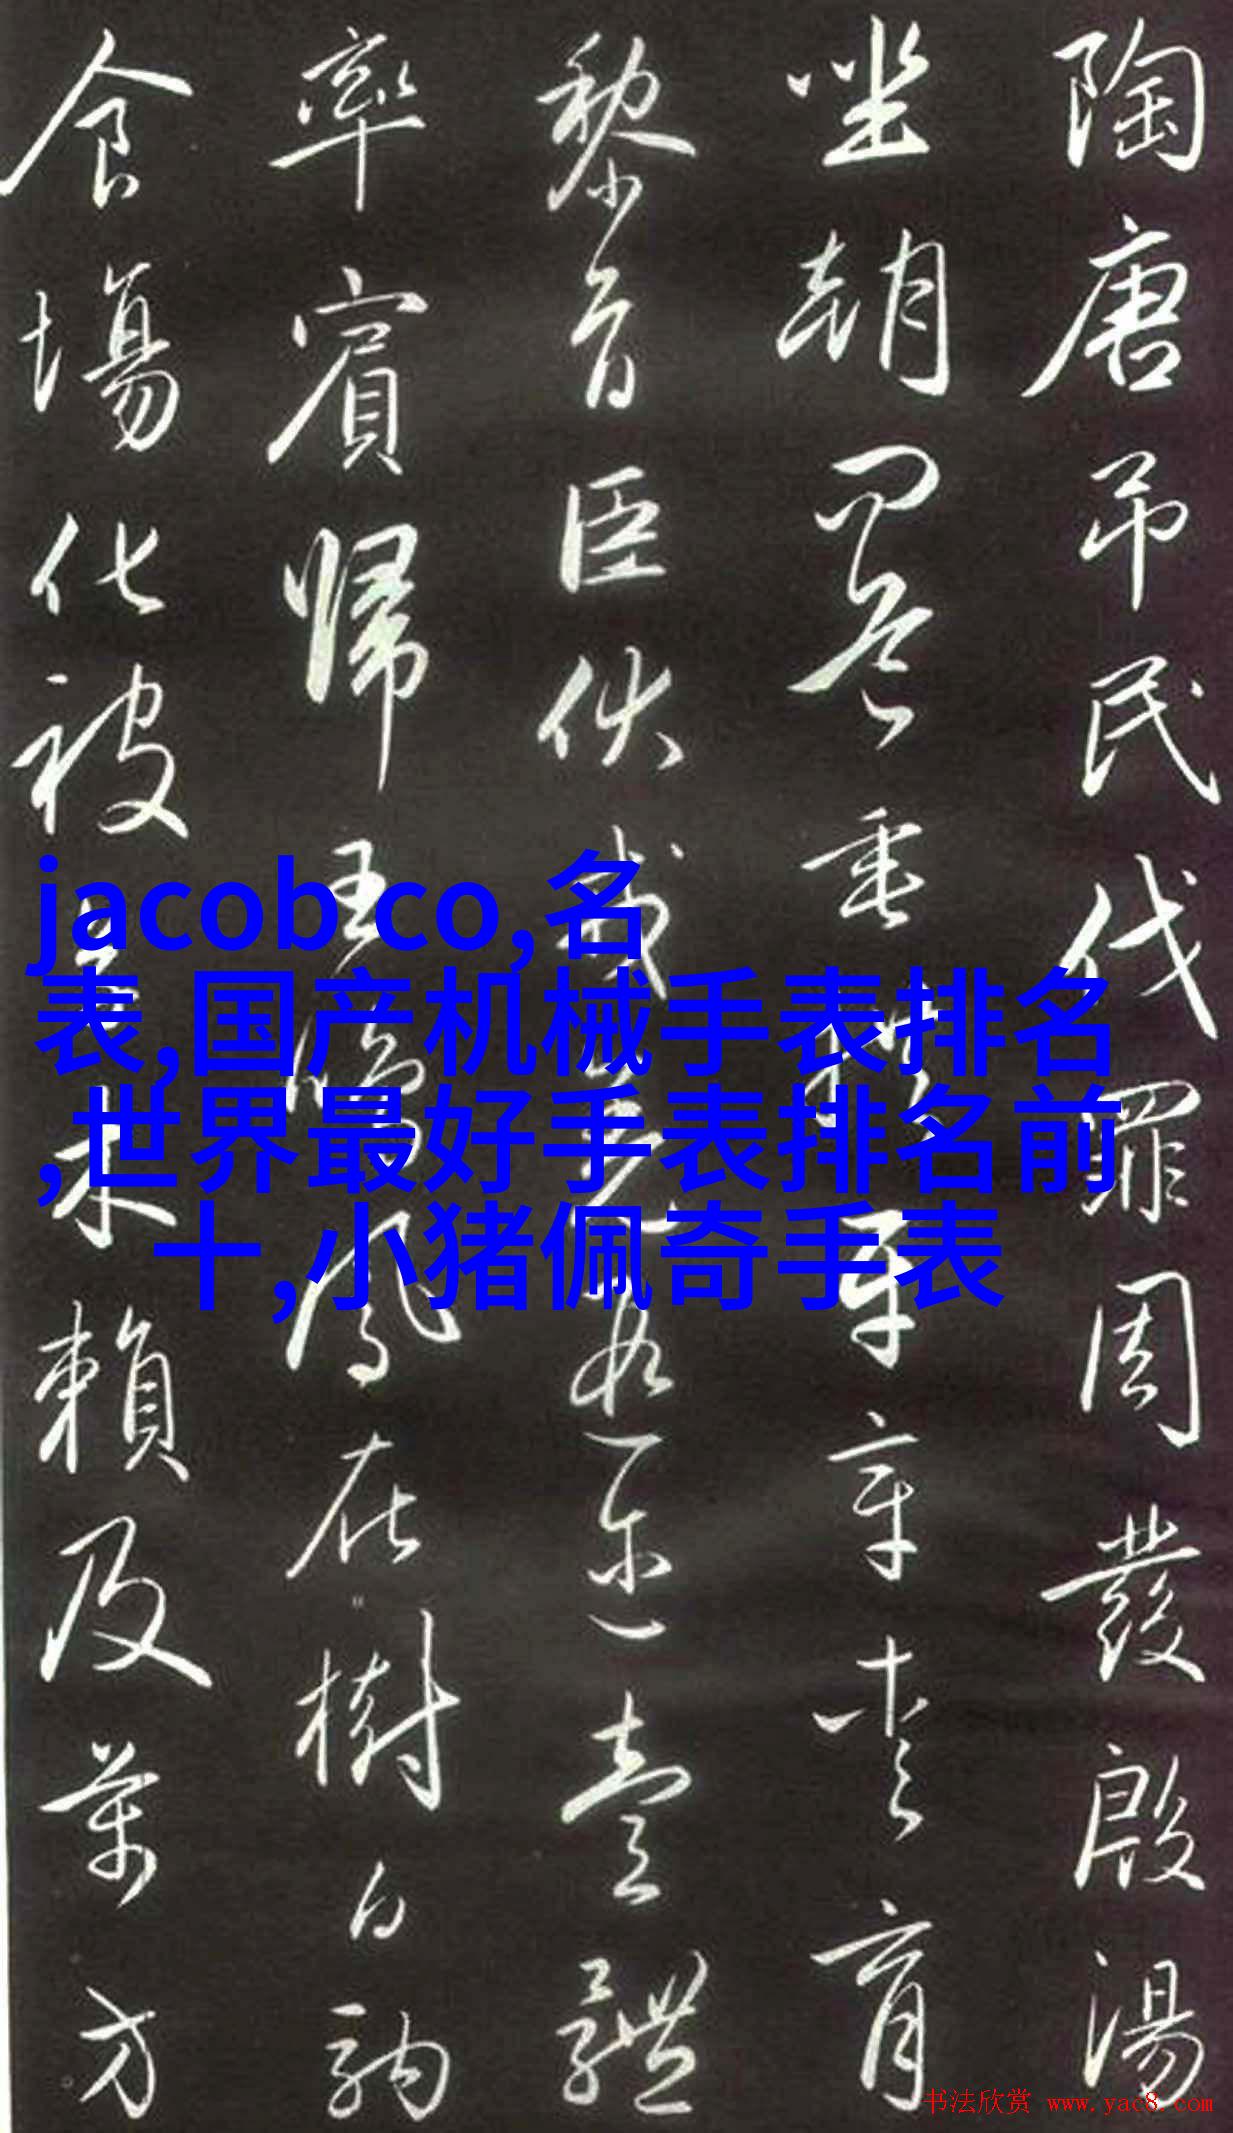 陶唐吊民伐罪周發殷湯
坐朝問道垂拱平章愛育
黎首臣伏戎羌遐迩壹體
率賓歸王鳴鳳在樹白駒
食場化被草木賴及萬方
jacob co,名
表,国产机械手表排名
,世界最好手表排名前
十,小猪佩奇手表
书法欣赏 www.yac8.com